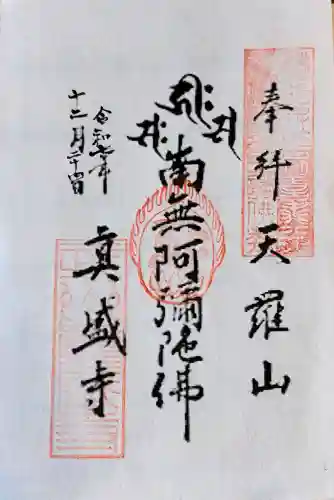 奉拜 天羅山
南無阿彌陀佛
眞盛寺
令和七年
十二月二十四日